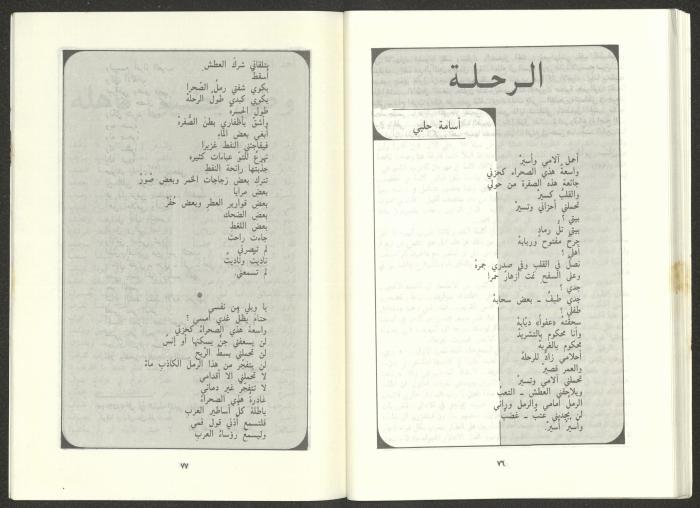 الرحلة
أسامة حلبي
أحمل آلامي وأسيرْ
واسعةٌ هذي الصحراء كحزني
جائعة هذه الصفرة من حولي
والقلبُ كسيرْ
تحملني أحزاني وتسيرْ
بيتي ؟
بيتي تلُّ رمادٍ
جرحٌ مفتوح وربابة
أهلي ؟
نصلٌ في القلب وفي صدري جمرهْ
وعلى السفح نمت أزهارٌ حمرا
جدي ؟
جدي طيفٌ ــ بعض سحابهْ
طفلي ؟
سحقَتْهُ «عفواً» دبّابهْ
وأنا محكوم بالتشريدْ
محكوم بالغربهْ
أحلامي زادٌ للرحلهْ
والعمر قصيرْ
تحملني آلامي وتسيرْ
ويلاحقني العطش ــ التعبُ
الرملُ أمامي والرمل ورائي
لن يجديني عتبٌ ــ غضبٌ
وأسيرُ أسيرْ.
٧٦
يتلقاني شركُ العطش
أسقطُ
يكوي شفتي رملُ الصّحرا
يكوي كبدي طولُ الرحلهْ
طولُ الحسرهْ
وأشقُّ بأظفاري بطنَ الصُّفرهْ
أبغي بعض الماء
فيفاجئني النفط غزيرا
تهرعُ للتوِّ عباءات كثيره
جذبتها رائحة النفط
تترك بعض زجاجات الخمر وبعض صُوَرْ
بعض مرايا
بعض قوارير العطر وبعض حُفَرْ
بعض الضحك
بعض اللغط
جاءت راحت
لم تبصرني
ناديت وناديتُ
لم تسمعني.
●
يا ويلي مِن نفسي
حتامَ يظلُّ غدي أمسي ؟
واسعة هذي الصحراءُ كحزني
لن يسعفني جنٌ يسكنها أو إنسٌ
لن تحملني بسطُ الرّيح
لن يتفجّر من هذا الرمل الكاذبِ ماءْ
لا تحملني الا أقدامي
لا تتفجّرُ غير دمائي
غادرةٌ هذي الصحراءُ
باطلة كلُّ أساطير العرب
فلتسمع أذني قول فمي
وليسمعْ رؤساءُ العرب
٧٧